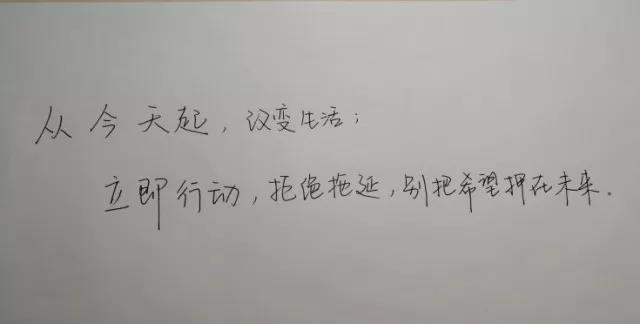 从今天起，改变生活；
立即行动，拒绝拖延，别把希望押在未来.